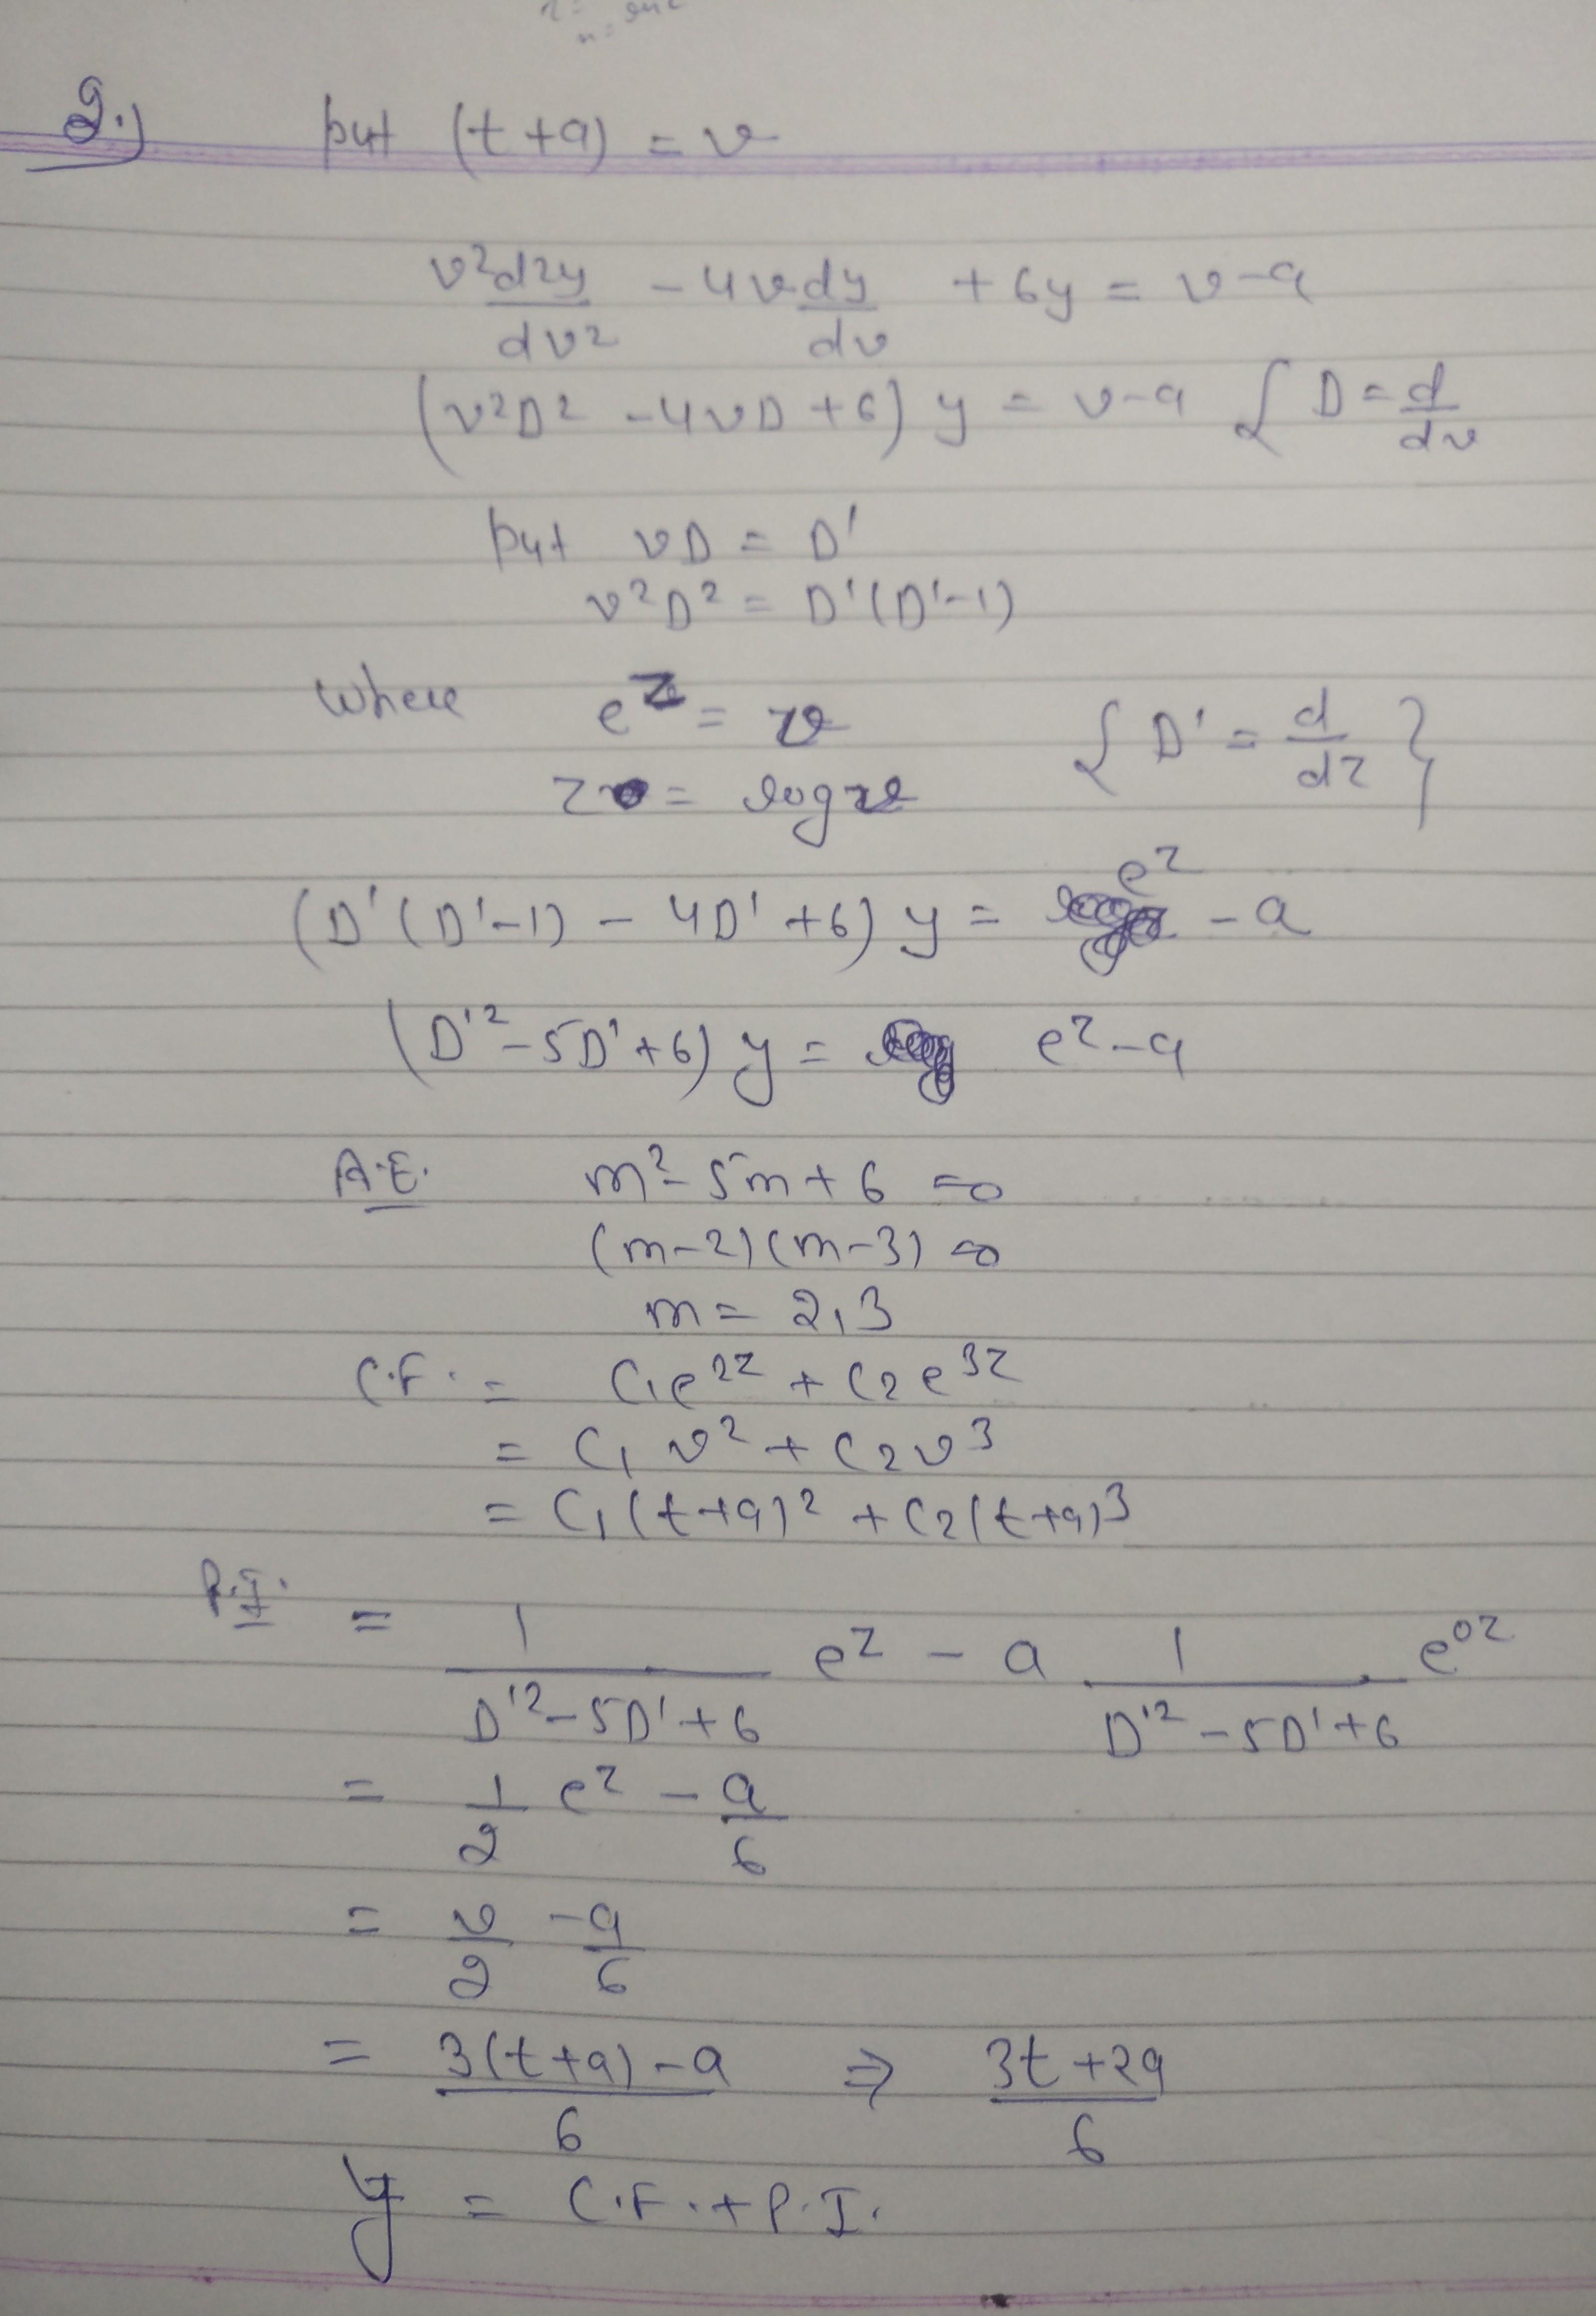 2.) put (t+a) = v
v²d2y/dv2 - 4vdy/dv + 6y = v-a
(v²D² - 4vD + 6) y = v-a { D = d/dv
put vD = D'
v²D² = D'(D'-1)
Where e^z = v { D' = d/dz }
z = log v
(D'(D'-1) - 4D' + 6) y = e^z - a
(D'² - 5D' + 6) y = e^z - a
A.E. m² - 5m + 6 = 0
(m-2)(m-3) = 0
m = 2,3
C.F. = C₁e^2z + C₂e^3z
= C₁v² + C₂v³
= C₁(t+a)² + C₂(t+a)³
P.I. = 1/(D'² - 5D' + 6) e^z - a 1/(D'² - 5D' + 6) e^0z
= 1/2 e^z - a/6
= v/2 - a/6
= (3(t+a) - a)/6 ⇒ (3t+2a)/6
y = C.F. + P.I.